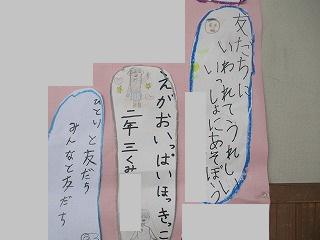 友だちに
いわれてうれしい
いっしょにあそぼう
えがおいっぱいほっきっこ
二年三くみ
ひとりと友だち
みんなと友だち